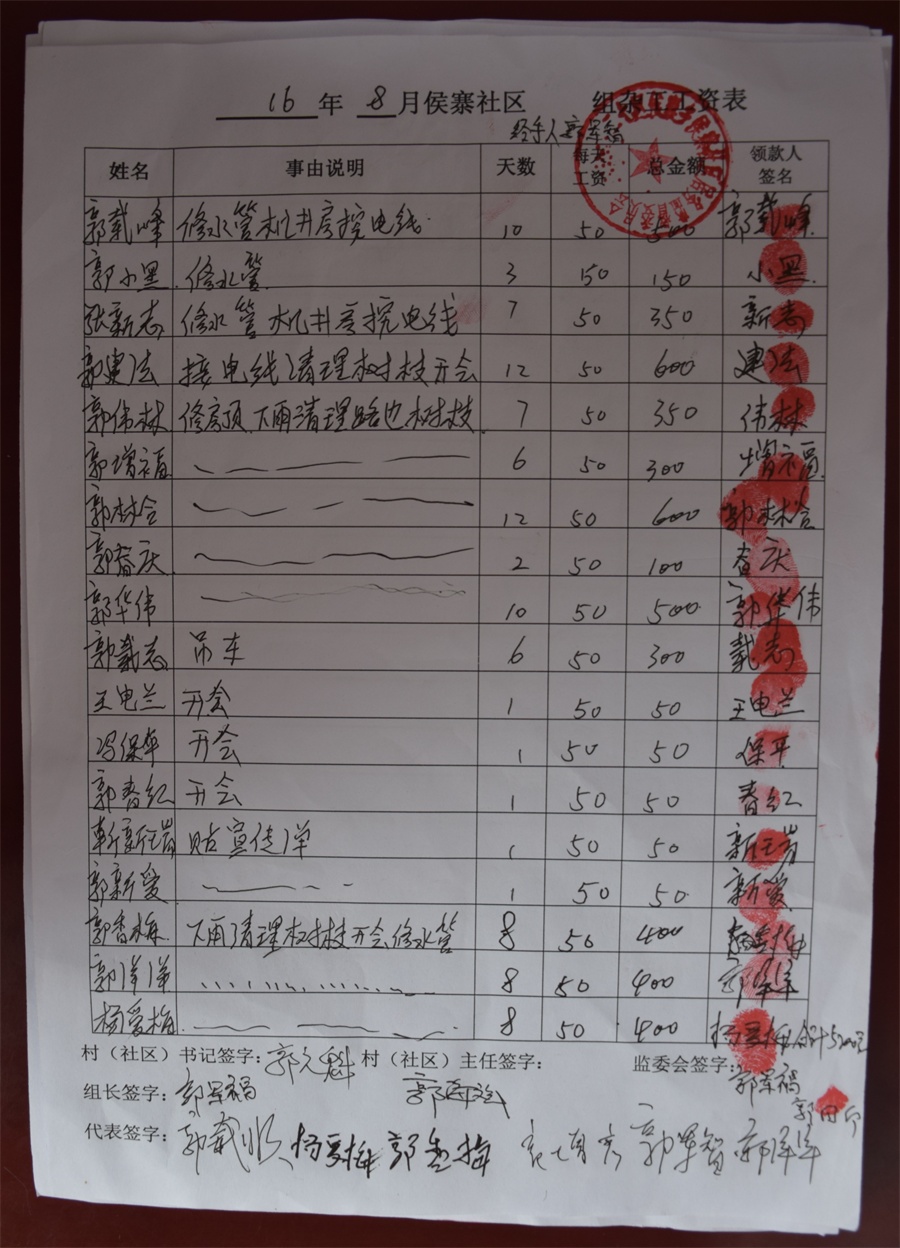 16 年 8 月侯寨社区 组杂工工资表
经手人
姓名 事由说明 天数 每天工资 总金额 领款人签名
郭载峰 修水管机井房挖电线 10 50 500 郭载峰
郭小黑 修水管 3 50 150 小黑
张新志 修水管机井房挖电线 7 50 350 新志
郭建法 接电线清理树枝开会 12 50 600 建法
郭伟林 修房顶下雨清理路边树枝 7 50 350 伟林
郭增福 6 50 300 增福
郭林合 12 50 600 郭林合
郭春庆 2 50 100 春庆
郭华伟 10 50 500 郭华伟
郭载志 吊车 6 50 300 载志
王电兰 开会 1 50 50 王电兰
冯保平 开会 1 50 50 保平
郭春红 开会 1 50 50 春红
靳新岩 贴宣传单 1 50 50
郭新爱 1 50 50 新爱
郭香梅 下雨清理树枝开会修水管 8 50 400
郭洋洋 8 50 400 郭洋洋
杨爱梅 8 50 400 杨爱梅 合计5200元
村（社区）书记签字：郭文魁 村（社区）主任签字： 监委会签字：
组长签字：郭军福 郭军福
代表签字：郭载顺 杨爱梅 郭香梅 郭军智 郭洋洋